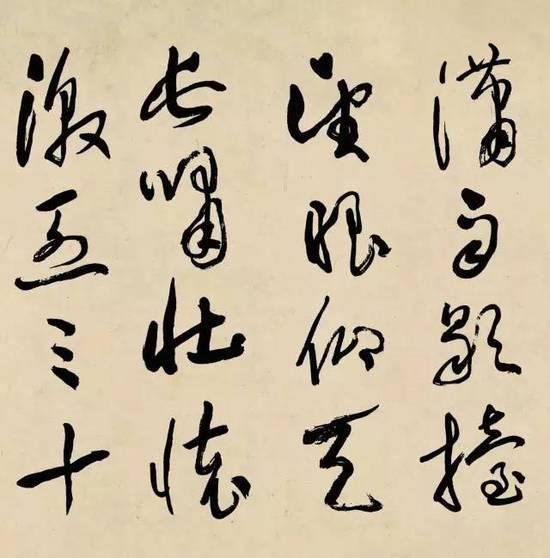 瀟雨歇擡
望眼仰天
長嘯壯懷
激烈三十